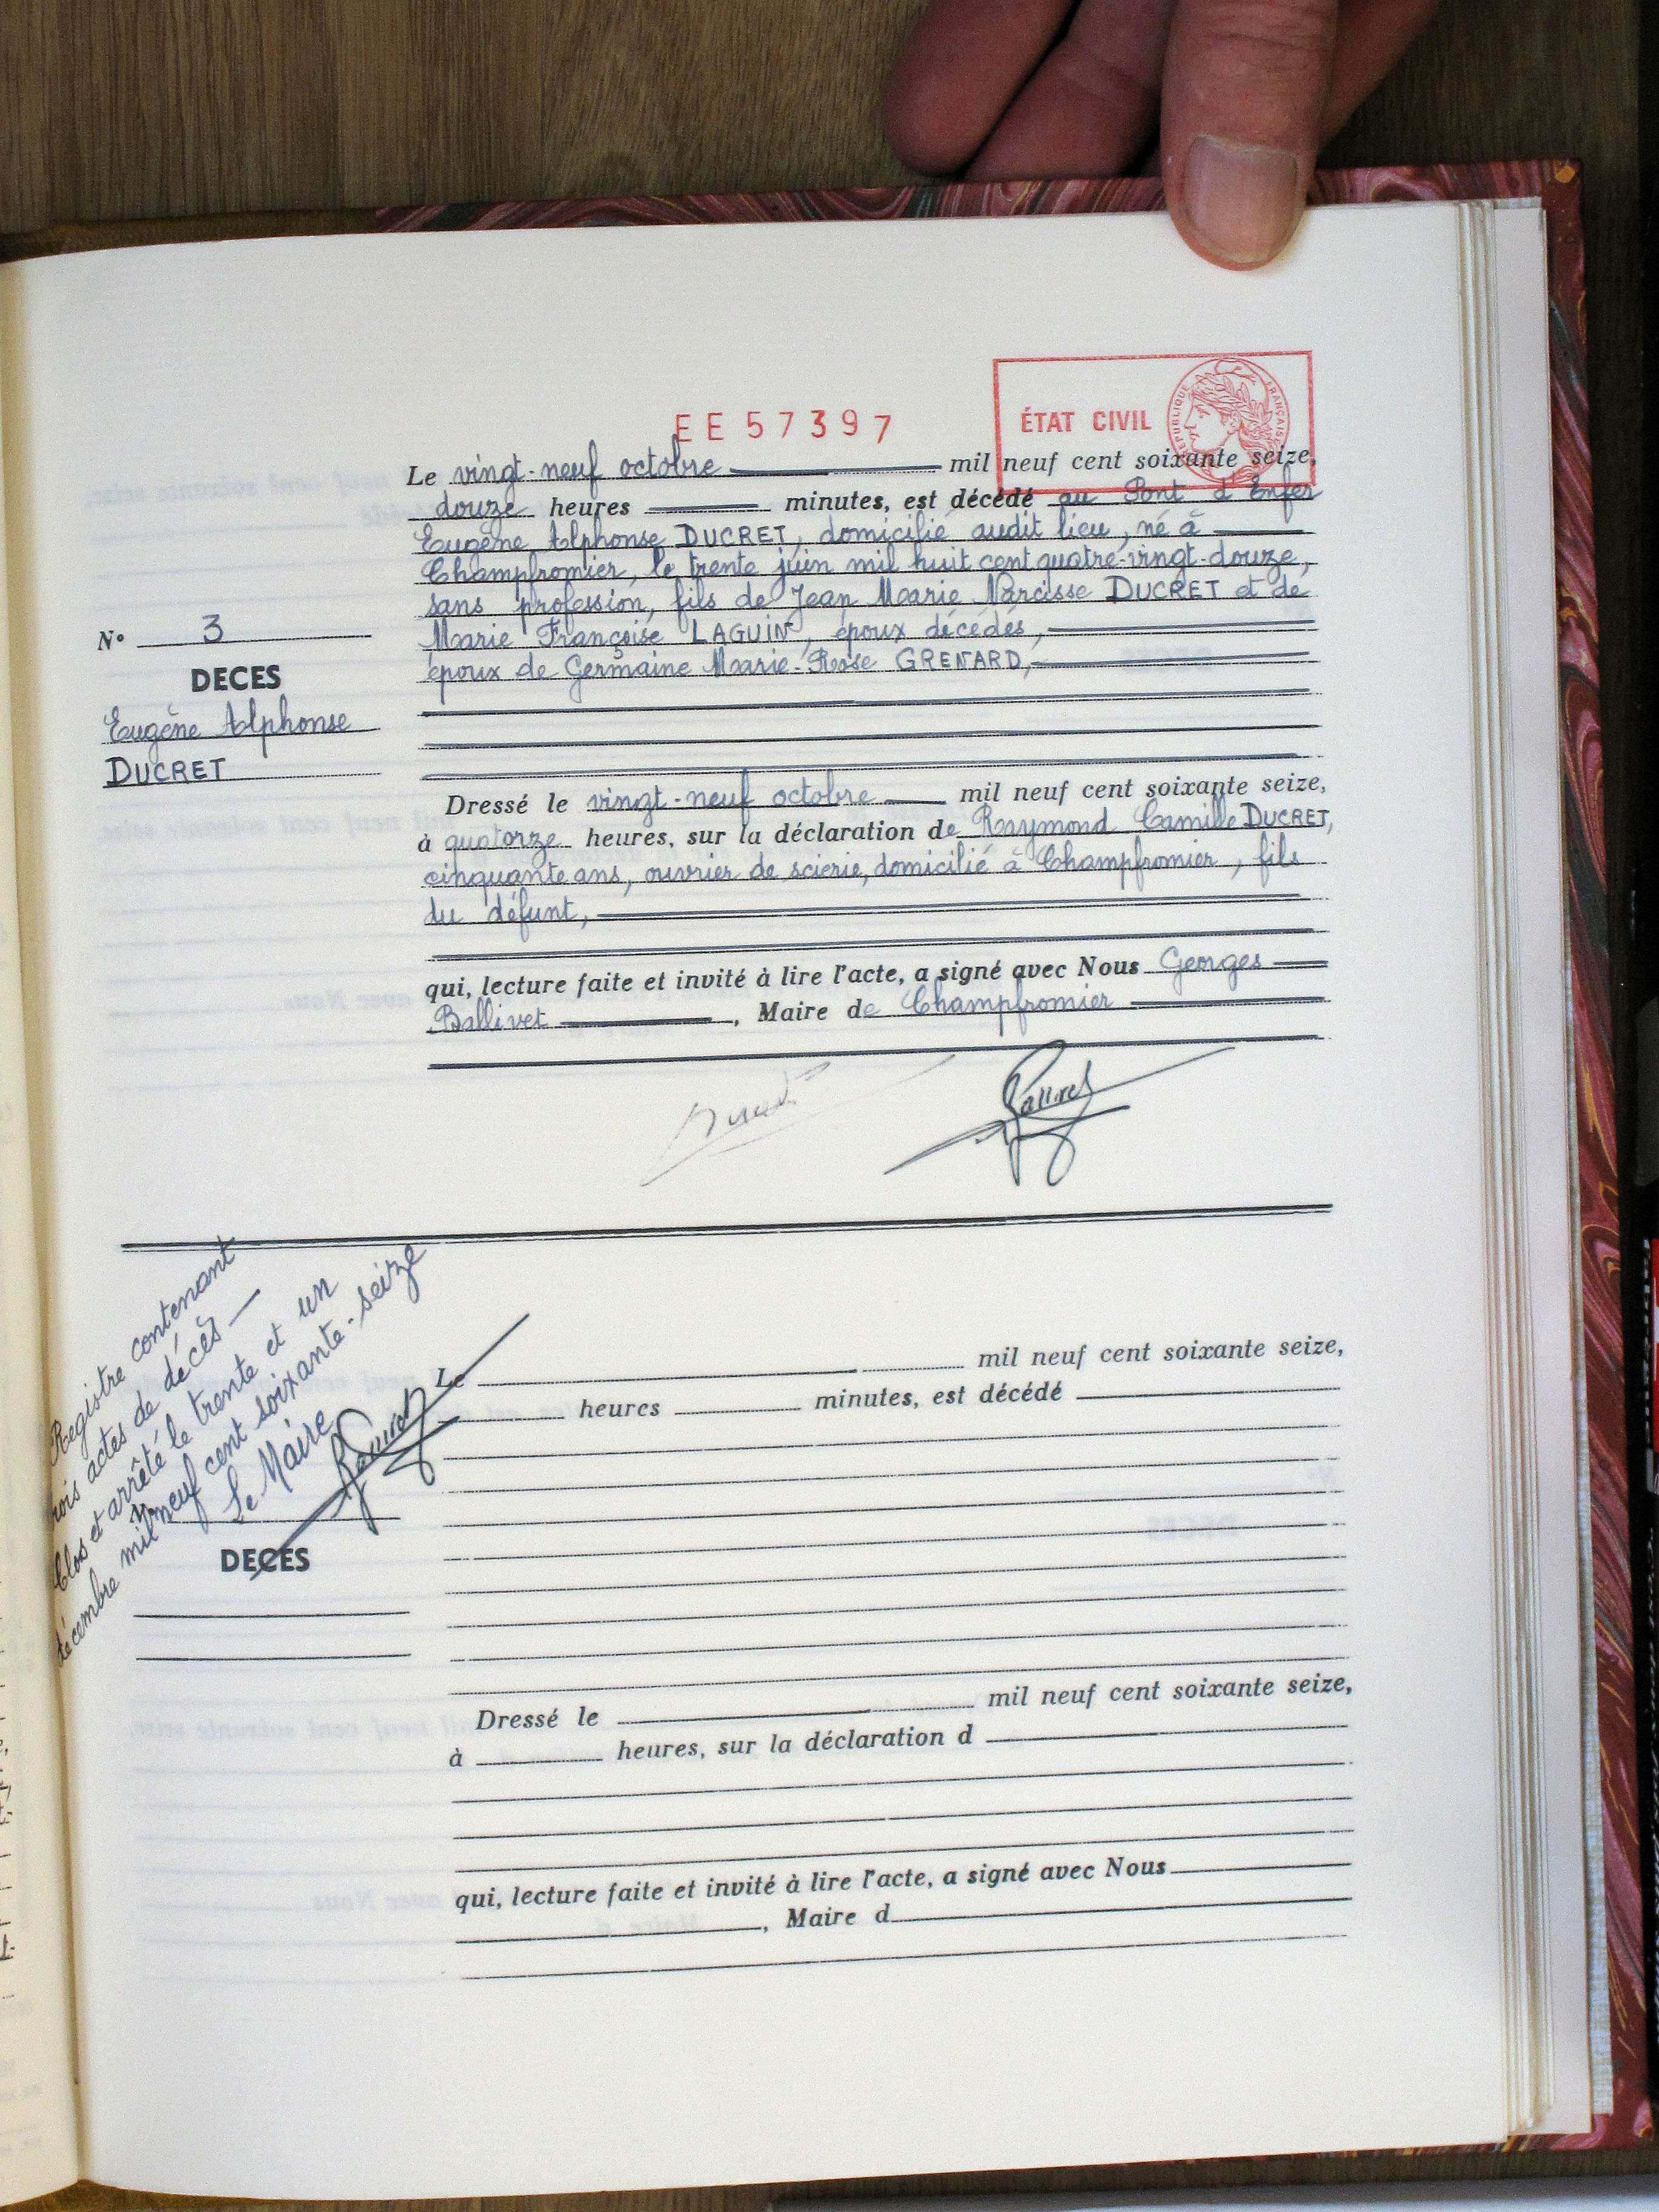 EE57397
ÉTAT CIVIL
RÉPUBLIQUE FRANÇAISE
Le vingt-neuf octobre mil neuf cent soixante seize,
douze heures minutes, est décédé au Pont d'Enfer
Eugène Alphonse DUCRET, domicilié audit lieu, né à
Champfromier, le trente juin mil huit cent quatre-vingt-douze,
sans profession, fils de Jean Marie Narcisse DUCRET et de
Marie Françoise LAGUIN, époux décédés,
époux de Germaine Marie-Rose GRENARD,
N° 3
DECES
Eugène Alphonse
DUCRET
Dressé le vingt-neuf octobre mil neuf cent soixante seize,
à quatorze heures, sur la déclaration de Raymond Camille DUCRET,
cinquante ans, ouvrier de scierie, domicilié à Champfromier, fils
du défunt,
qui, lecture faite et invité à lire l'acte, a signé avec Nous Georges
Ballivet, Maire de Champfromier
Registre contenant
rois actes de décès
Clos et arrêté le trente et un
décembre mil neuf cent soixante-seize
Le Maire
Le mil neuf cent soixante seize,
heures minutes, est décédé
DECES
Dressé le mil neuf cent soixante seize,
à heures, sur la déclaration d
qui, lecture faite et invité à lire l'acte, a signé avec Nous
, Maire d